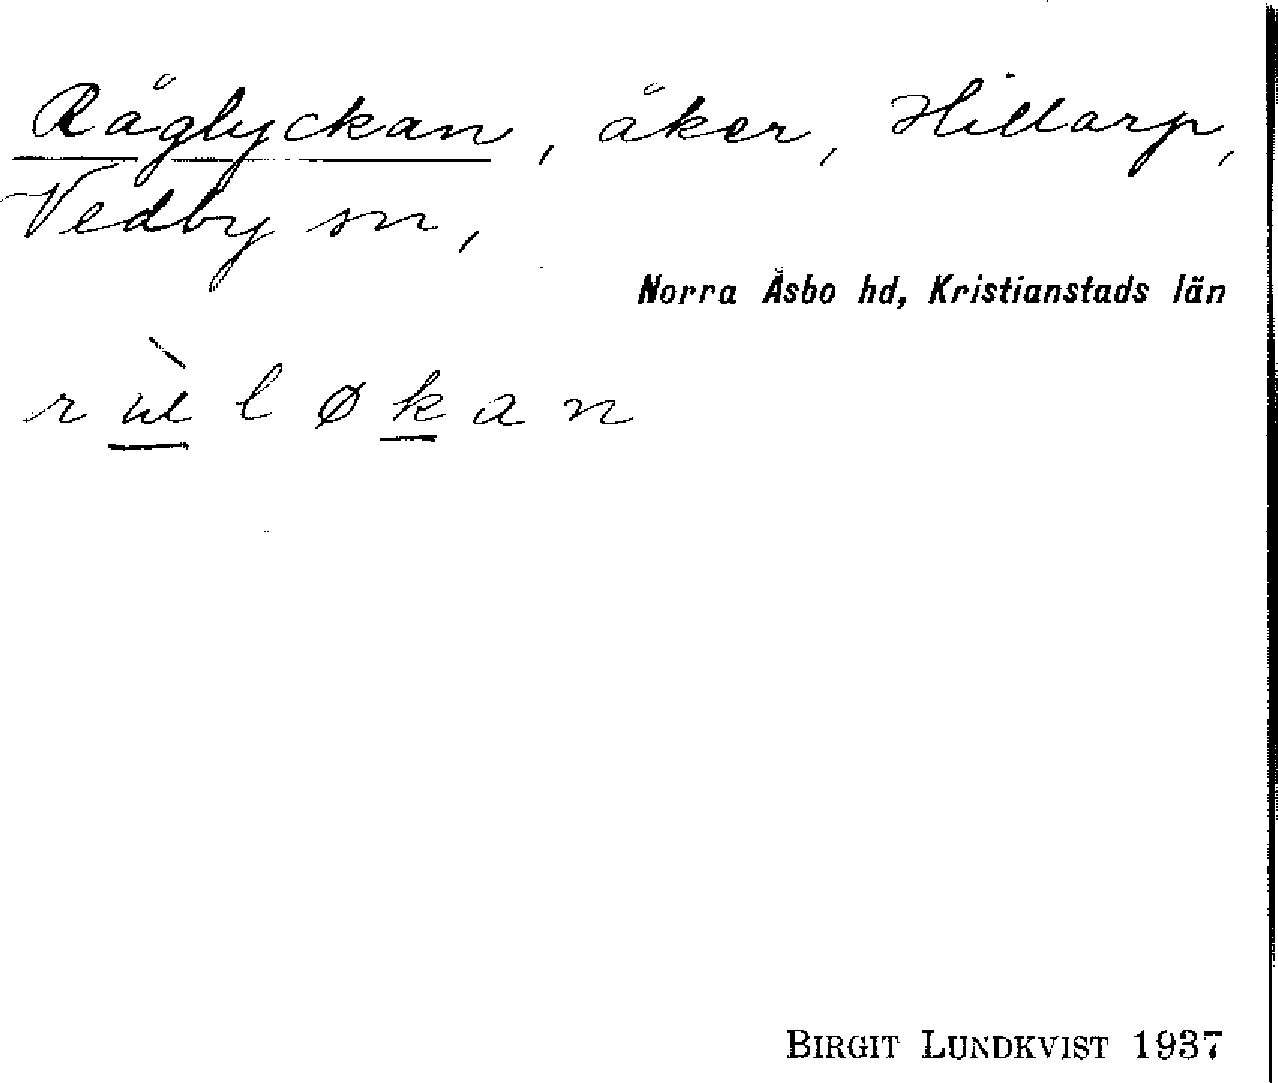 Råglyckan, åker, Hillarp,
Vedby sn,
Norra Åsbo hd, Kristianstads län
BIRGIT LUNDKVIST 1937